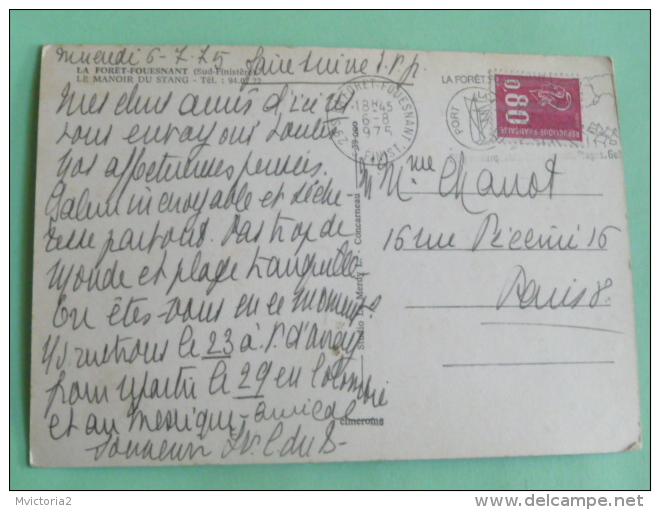 mercredi 6-7.75 faire suivre S.V.P.
LA FORÊT-FOUESNANT (Sud-Finistère)
LE MANOIR DU STANG - Tél. : 94.
LA FORÊT
29 LA FORÊT-FOUESNANT
18H45
6-8
1975
FINIST.
PORT
0,80
REPUBLIQUE FRANÇAISE
Mes chers amis d'ici
vous envoyons toutes
nos affectueuses pensées.
Chaleur incroyable et sèche-
resse partout. Pas trop de
monde et plage tranquille
Où êtes-vous en ce moment
rentrons le 23 à V. d'Avray
pour repartir le 29 en Colombie
et au Mexique, amical
souvenir
Mr Mme Chanot
16 rue Piccini 16
Paris
Studio Le Merdy L. - Concarneau
cimeroms
Mvictoria2
http://www.delcampe.net